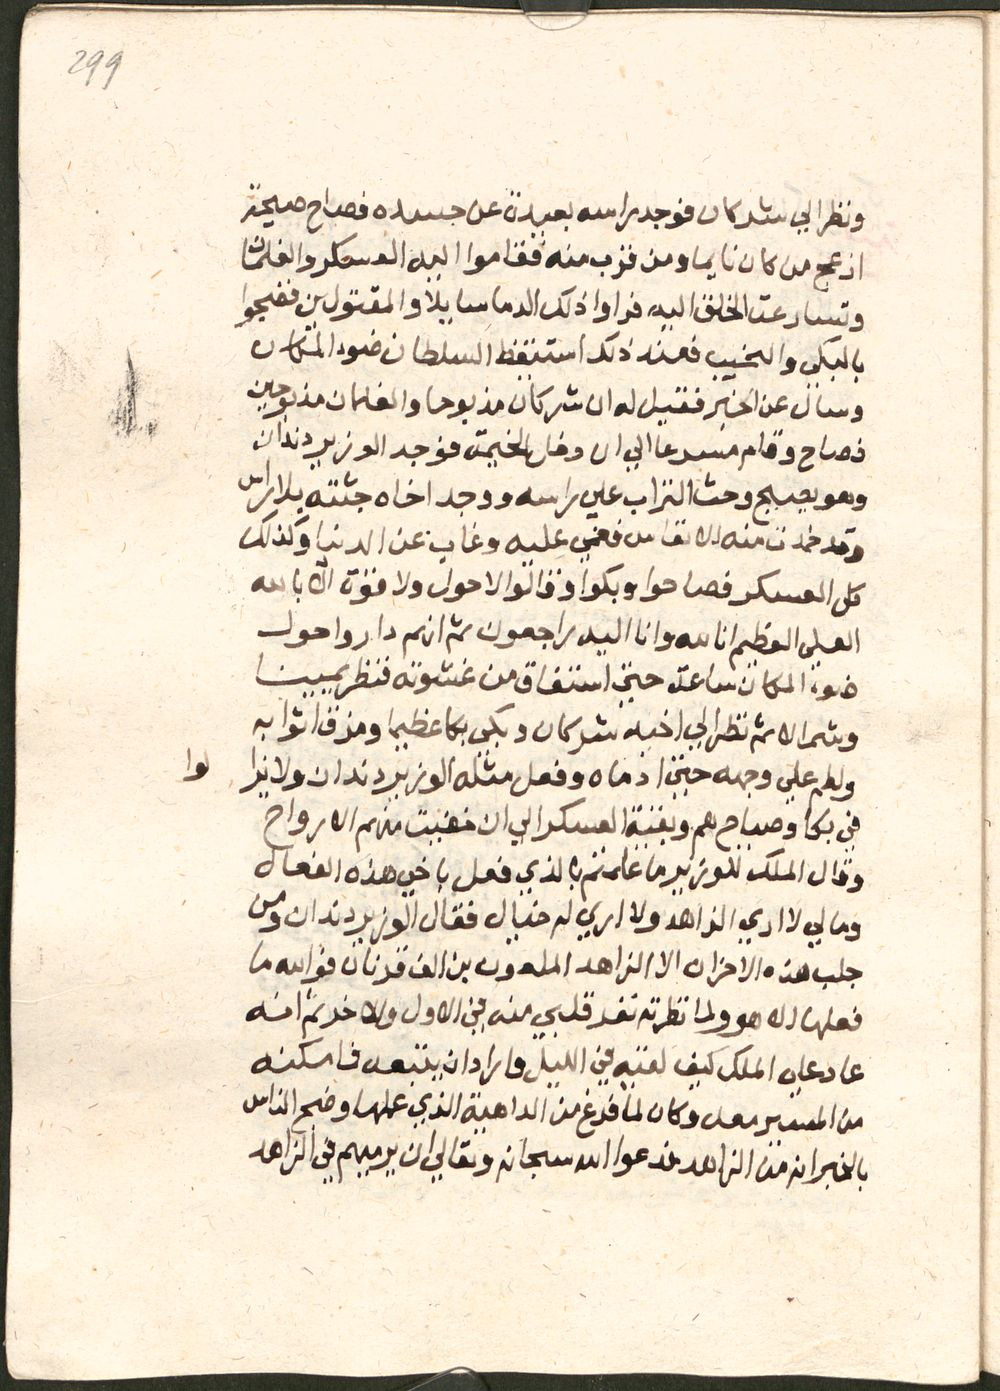 299
ونظر الي شركان فوجد راسه بعيدة عن جسده فصاح صيحة
ازعج من كان نايما ومن قرب منه فقاموا اليه العسكر والغلمان
وتسارعت الخلق اليه فراوا ذلك الدما سايلا والمقتولين فضجوا
بالبكي والنحيب فعند ذلك استيقظ السلطان ضوء المكان
وسال عن الخبر فقيل له ان شركان مذبوحا والغلمان مذبوحين
فصاح وقام مسرعا الي ان دخل الخيمة فوجد الوزير دندان
وهو يصيح وحث التراب علي راسه ووجد اخاه جثته بلا راس
وقد خمدت منه الانفاس فغمي عليه وغاب عن الدنيا وكذلك
كل العسكر فصاحوا وبكوا وقالوا لا حول ولا قوة الا بالله
العلي العظيم انا لله وانا اليه راجعون ثم انهم داروا حول
ضوء المكان ساعة حتي استفاق من غشوته فنظر يمينا
وشمالا ثم نظر الي اخيه شركان وبكي بكا عظيما ومزق اثوابه
ولطم علي وجهه حتي ادماه وفعل مثله الوزير دندان ولا زا لوا
في بكا وصياح هم وبقية العسكر الي ان غيبت منهم الارواح
وقال الملك للوزير ما علمتم بالذي فعل باخي هذه الفعال
ومالي لا اري الزاهد ولا اري له خيال فقال الوزير دندان ومن
جلب هذه الاحزان الا الزاهد الملعون بن الف قرنان فوالله ما
فعلها الا هو ولما نظرته نفر قلبي منه في الاول والاخر ثم انه
عاد علي الملك كيف لقيه في الليل واراد ان يتبعه فامكنه
من المسير معه وكان لما فرغ من الداهية الذي عملها وضج الناس
بالخبر انه من الزاهد فدعوا الله سبحانه وتعالي ان يرميهم في الزاهد